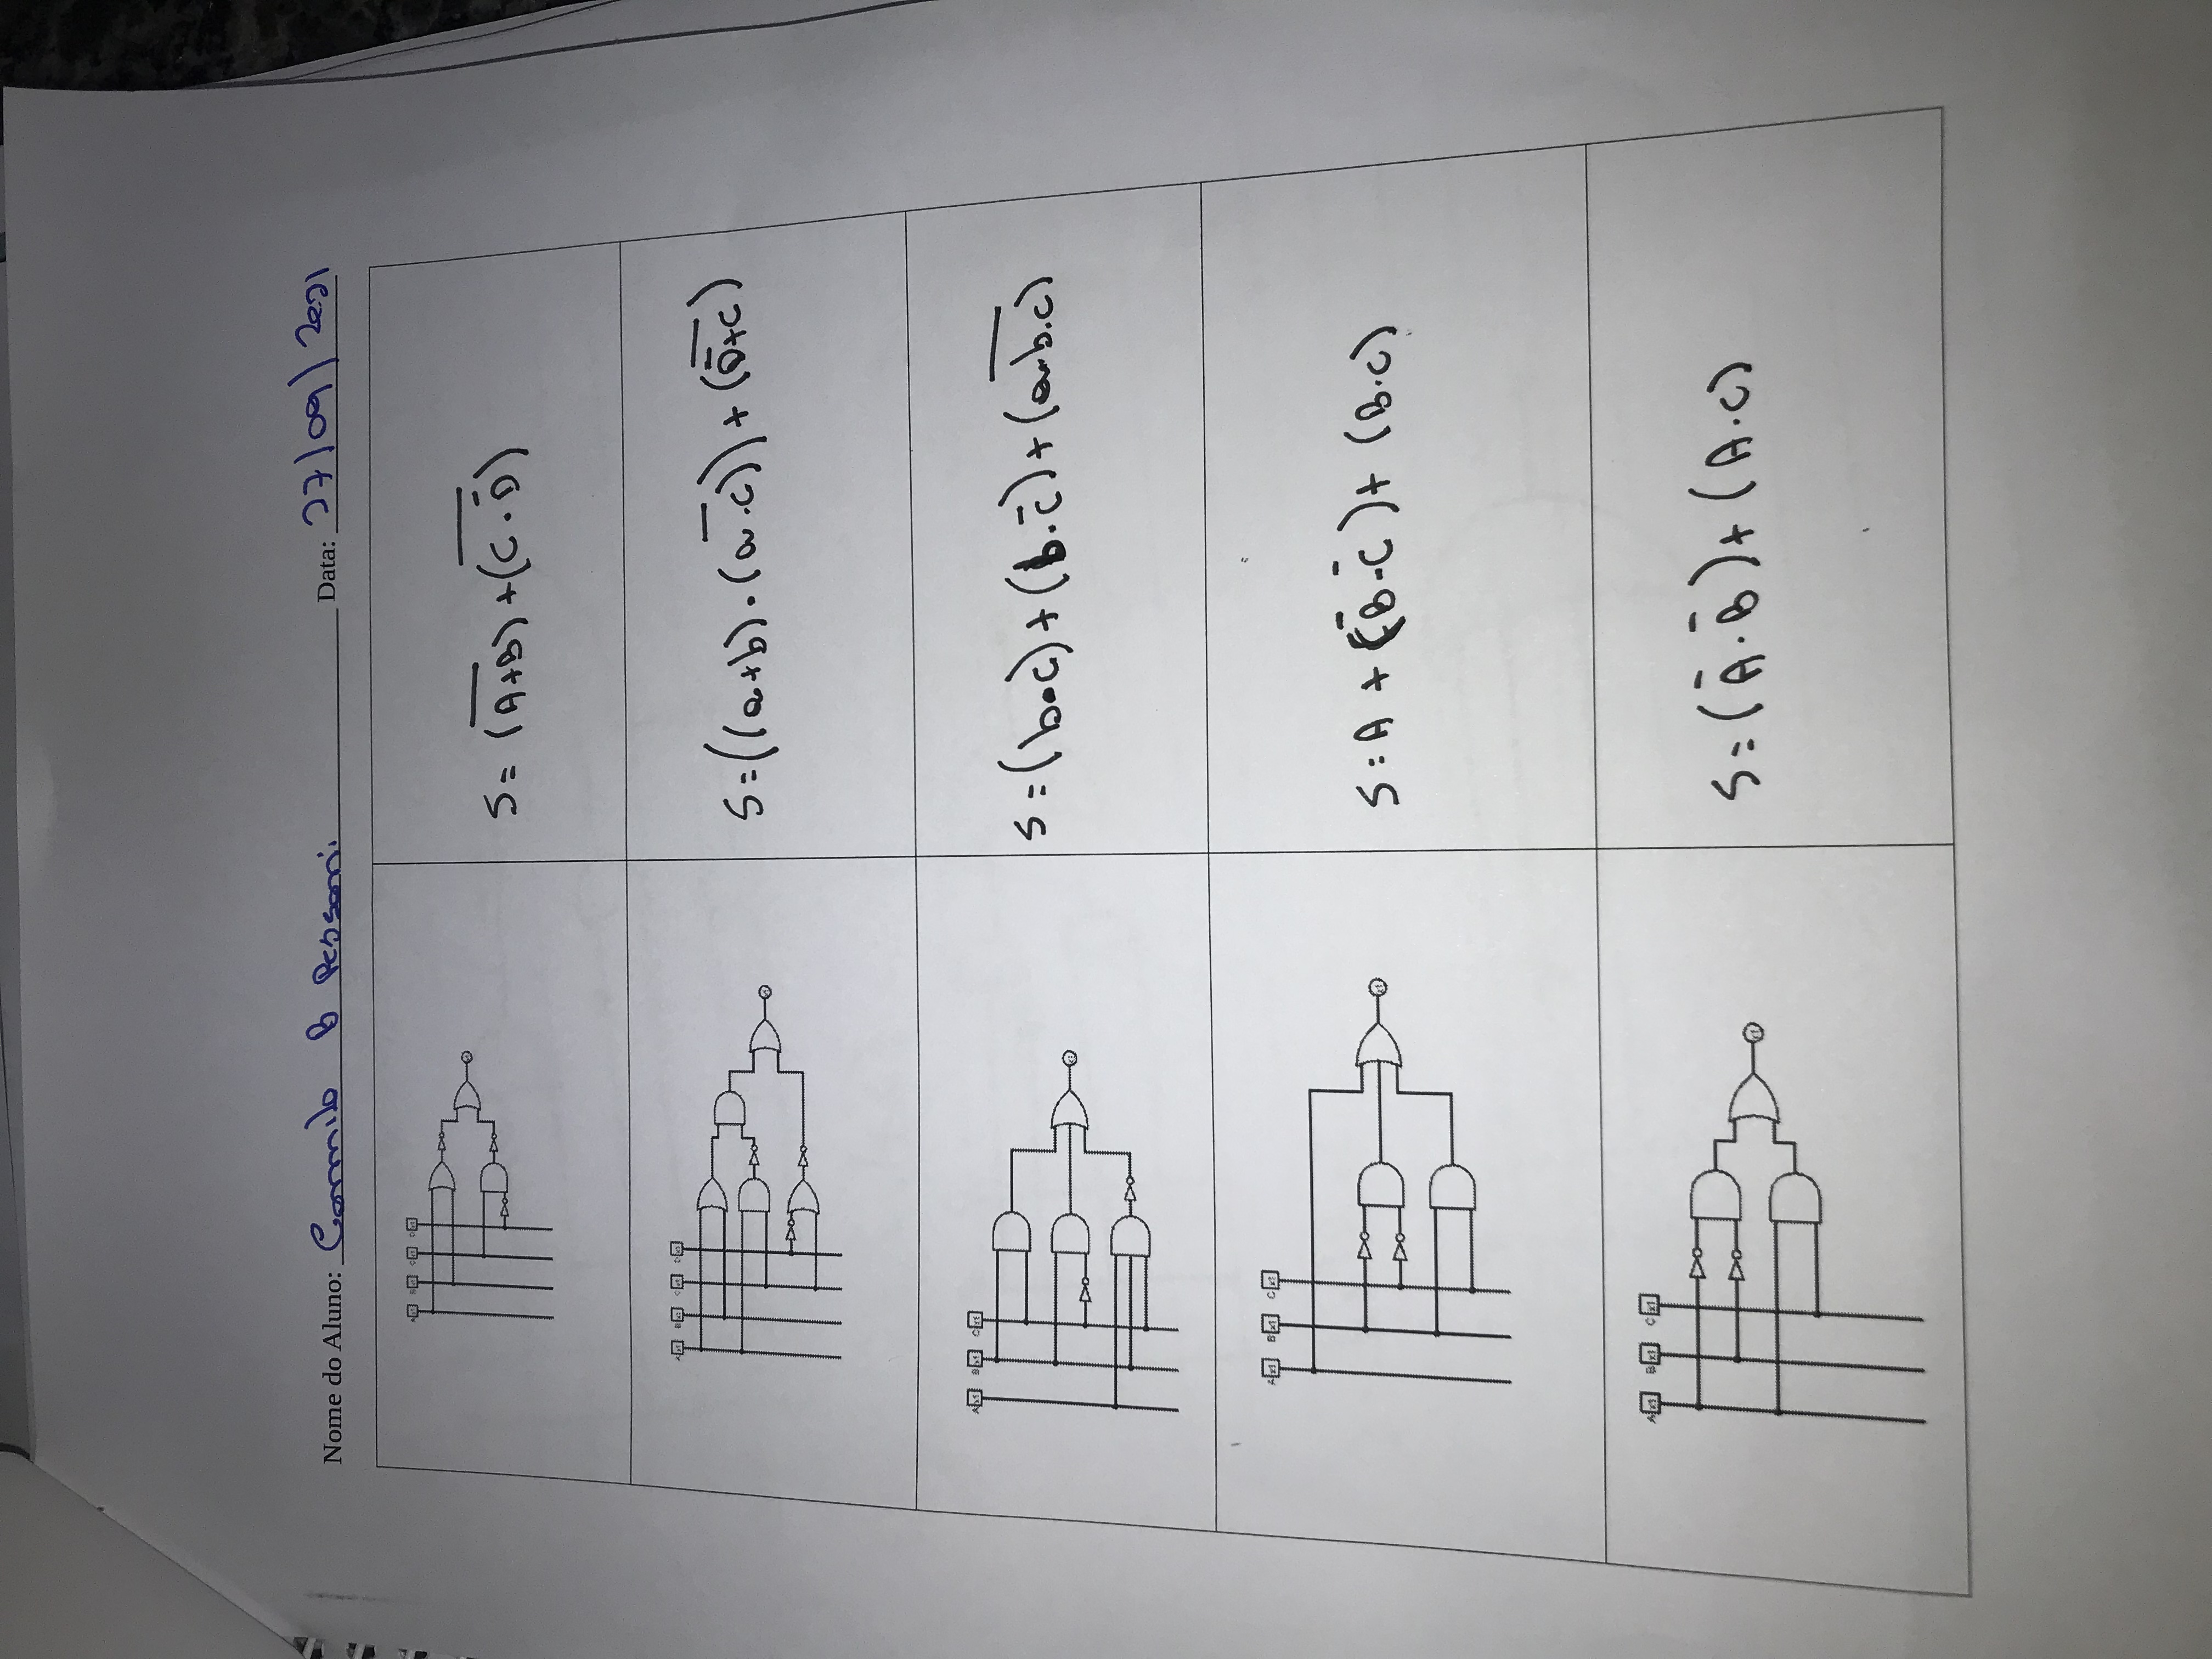 Nome do Aluno: Cammilo B Pessoni Data: 27/09/2021
A B C D
S = (A̅+̅B̅) + (C̅ ̅.̅ ̅D̿)
A B C D
S = ((a+b) . (a̅ ̅.̅ ̅c̅)) + (D̿+̅C̅)
A x1 B x1 C x1
S = (b.c) + (b.c̅) + (a̅.̅b̅.̅c̅)
A x1 B x1 C x1
S = A + (B̅.C̅) + (B.C)
A x1 B x1 C x1
S = (A̅.B̅) + (A.C)